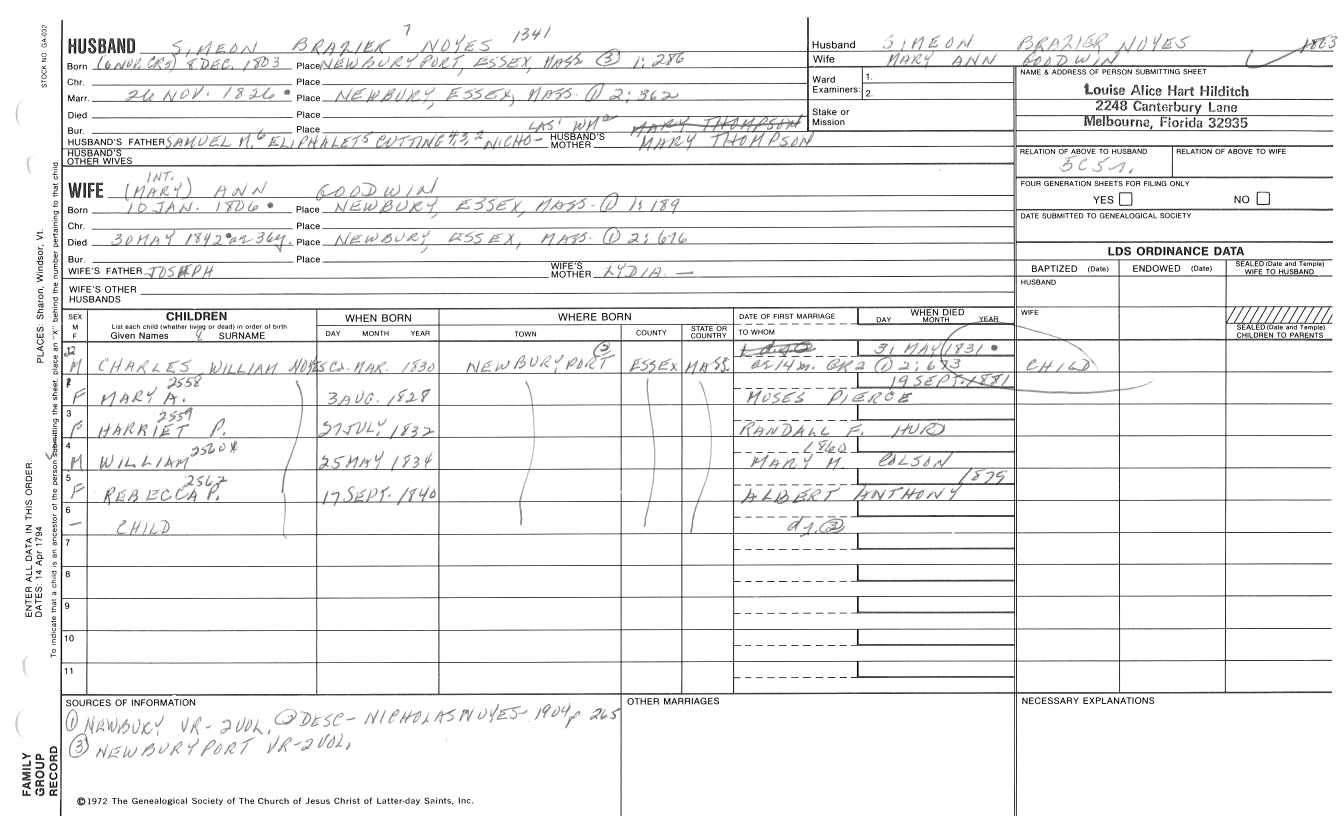 STOCK NO. GA-032
HUSBAND SIMEON BRAZIER 7 NOYES 1341
Born (6 NOV. CR3) 8 DEC. 1803 Place NEWBURYPORT, ESSEX, MASS ③ 1:286
Chr. Place
Marr. 26 NOV. 1826 • Place NEWBURY, ESSEX, MASS. ① 2:362
Died Place
Bur. Place
HUSBAND'S FATHER SAMUEL M.6 ELIPHALET5 CUTTING4,3,2 NICHO-LAS' WM2
HUSBAND'S MOTHER MARY THOMPSON MARY THOMPSON
HUSBAND'S OTHER WIVES
INT.
WIFE (MARY) ANN GOODWIN
Born 10 JAN. 1806 • Place NEWBURY, ESSEX, MASS. ① 1:189
Chr. Place
Died 30 MAY 1842 • ae 36y. Place NEWBURY, ESSEX, MASS. ① 2:676
Bur. Place
WIFE'S FATHER JOSEPH WIFE'S MOTHER LYDIA —
WIFE'S OTHER HUSBANDS
Husband SIMEON BRAZIER NOYES 1803
Wife MARY ANN GOODWIN
Ward Examiners: 1. 2.
Stake or Mission
NAME & ADDRESS OF PERSON SUBMITTING SHEET
Louise Alice Hart Hilditch
2248 Canterbury Lane
Melbourne, Florida 32935
RELATION OF ABOVE TO HUSBAND RELATION OF ABOVE TO WIFE
5C5r.
FOUR GENERATION SHEETS FOR FILING ONLY
YES NO
DATE SUBMITTED TO GENEALOGICAL SOCIETY
LDS ORDINANCE DATA
BAPTIZED (Date) ENDOWED (Date) SEALED (Date and Temple) WIFE TO HUSBAND
HUSBAND
WIFE
SEALED (Date and Temple) CHILDREN TO PARENTS
SEX M F CHILDREN WHEN BORN WHERE BORN DATE OF FIRST MARRIAGE WHEN DIED
List each child (whether living or dead) in order of birth
Given Names 8 SURNAME DAY MONTH YEAR TOWN COUNTY STATE OR COUNTRY TO WHOM DAY MONTH YEAR
M CHARLES WILLIAM NOYES Ca. MAR. 1830 NEWBURYPORT ③ ESSEX MASS. ae 14 m. GR2 ① 2:673 31 MAY 1831 • CHILD
F MARY A. 2558 3 AUG. 1828 MOSES PIERCE 19 SEPT. 1881
3 F HARRIET P. 2559 27 JULY 1832 RANDALL F. HURD
4 M WILLIAM 2560X 25 MAY 1834 1860 MARY M. COLSON
5 F REBECCA P. 2562 17 SEPT. 1840 ALBERT ANTHONY 1879
6 — CHILD d.y. ②
7
8
9
10
11
SOURCES OF INFORMATION
① NEWBURY VR-2VOL. ② DESC-NICHOLAS NOYES-1904 p 265
③ NEWBURYPORT VR-2VOL.
OTHER MARRIAGES
NECESSARY EXPLANATIONS
©1972 The Genealogical Society of The Church of Jesus Christ of Latter-day Saints, Inc.
FAMILY GROUP RECORD
ENTER ALL DATA IN THIS ORDER:
DATES: 14 Apr 1794
PLACES: Sharon, Windsor, Vt.
To indicate that a child is an ancestor of the person submitting the sheet, place an "X" behind the number pertaining to that child.